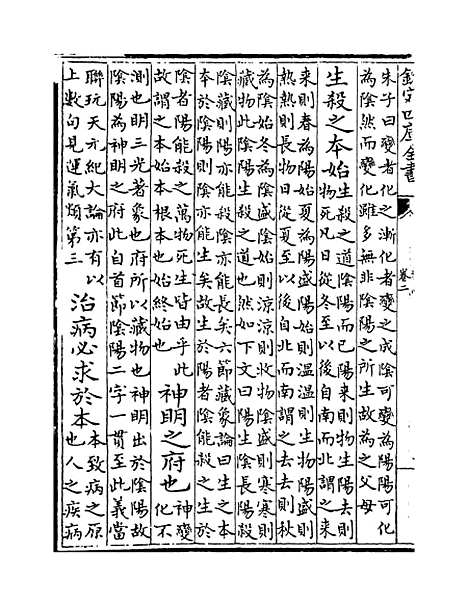 欽定四庫全書
卷二
朱子曰變者化之漸化者變之成陰可變為陽陽可化
為陰然而變化雖多無非陰陽之所生故為之父母
生殺之本始生殺之道陰陽而已陽來則物生陽去則
物死凡日從冬至以後自南而北謂之來
來則春為陽始夏為陽盛陽始則溫溫則生物陽盛則
熱熱則長物日從夏至以後自北而南謂之去去則秋
為陰始冬為陰盛陰始則涼涼則收物陰盛則寒寒則
藏物此陰陽生殺之道也然如下文曰陽生陰長陽殺
陰藏則陽亦能殺陰亦能長矣六節藏象論曰生之本
本於陰陽則陰亦能生矣故生於陽者陰能殺之生於
陰者陽能殺之萬物死生皆由乎此
故謂之本始本根本也始終始也神明之府也神變
化不
測也明三光著象也府所以藏物也神明出於陰陽故
陰陽為神明之府此自首節陰陽二字一貫至此義當
聯玩天元紀大論亦有以
上數句見運氣類第三治病必求於本本致病之原
也人之疾病